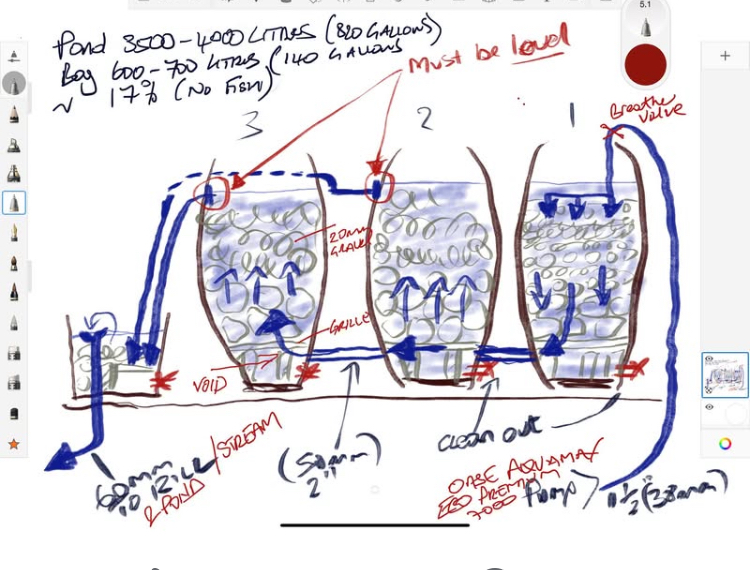 5.1
Pond 3500-4000 LITRES (820 GALLONS)
Bog 600-700 LITRES (140 GALLONS
~ 17% (No FISH)
Must be level
Breather
Valve
3
2
1
20mm
GRAVEL
GRILLE
VOID
(50mm
2")
clean out
STREAM
2 POND
OASE AQUAMAX
ECO PREMIUM
7000 Pump
1 1/2 (38mm)